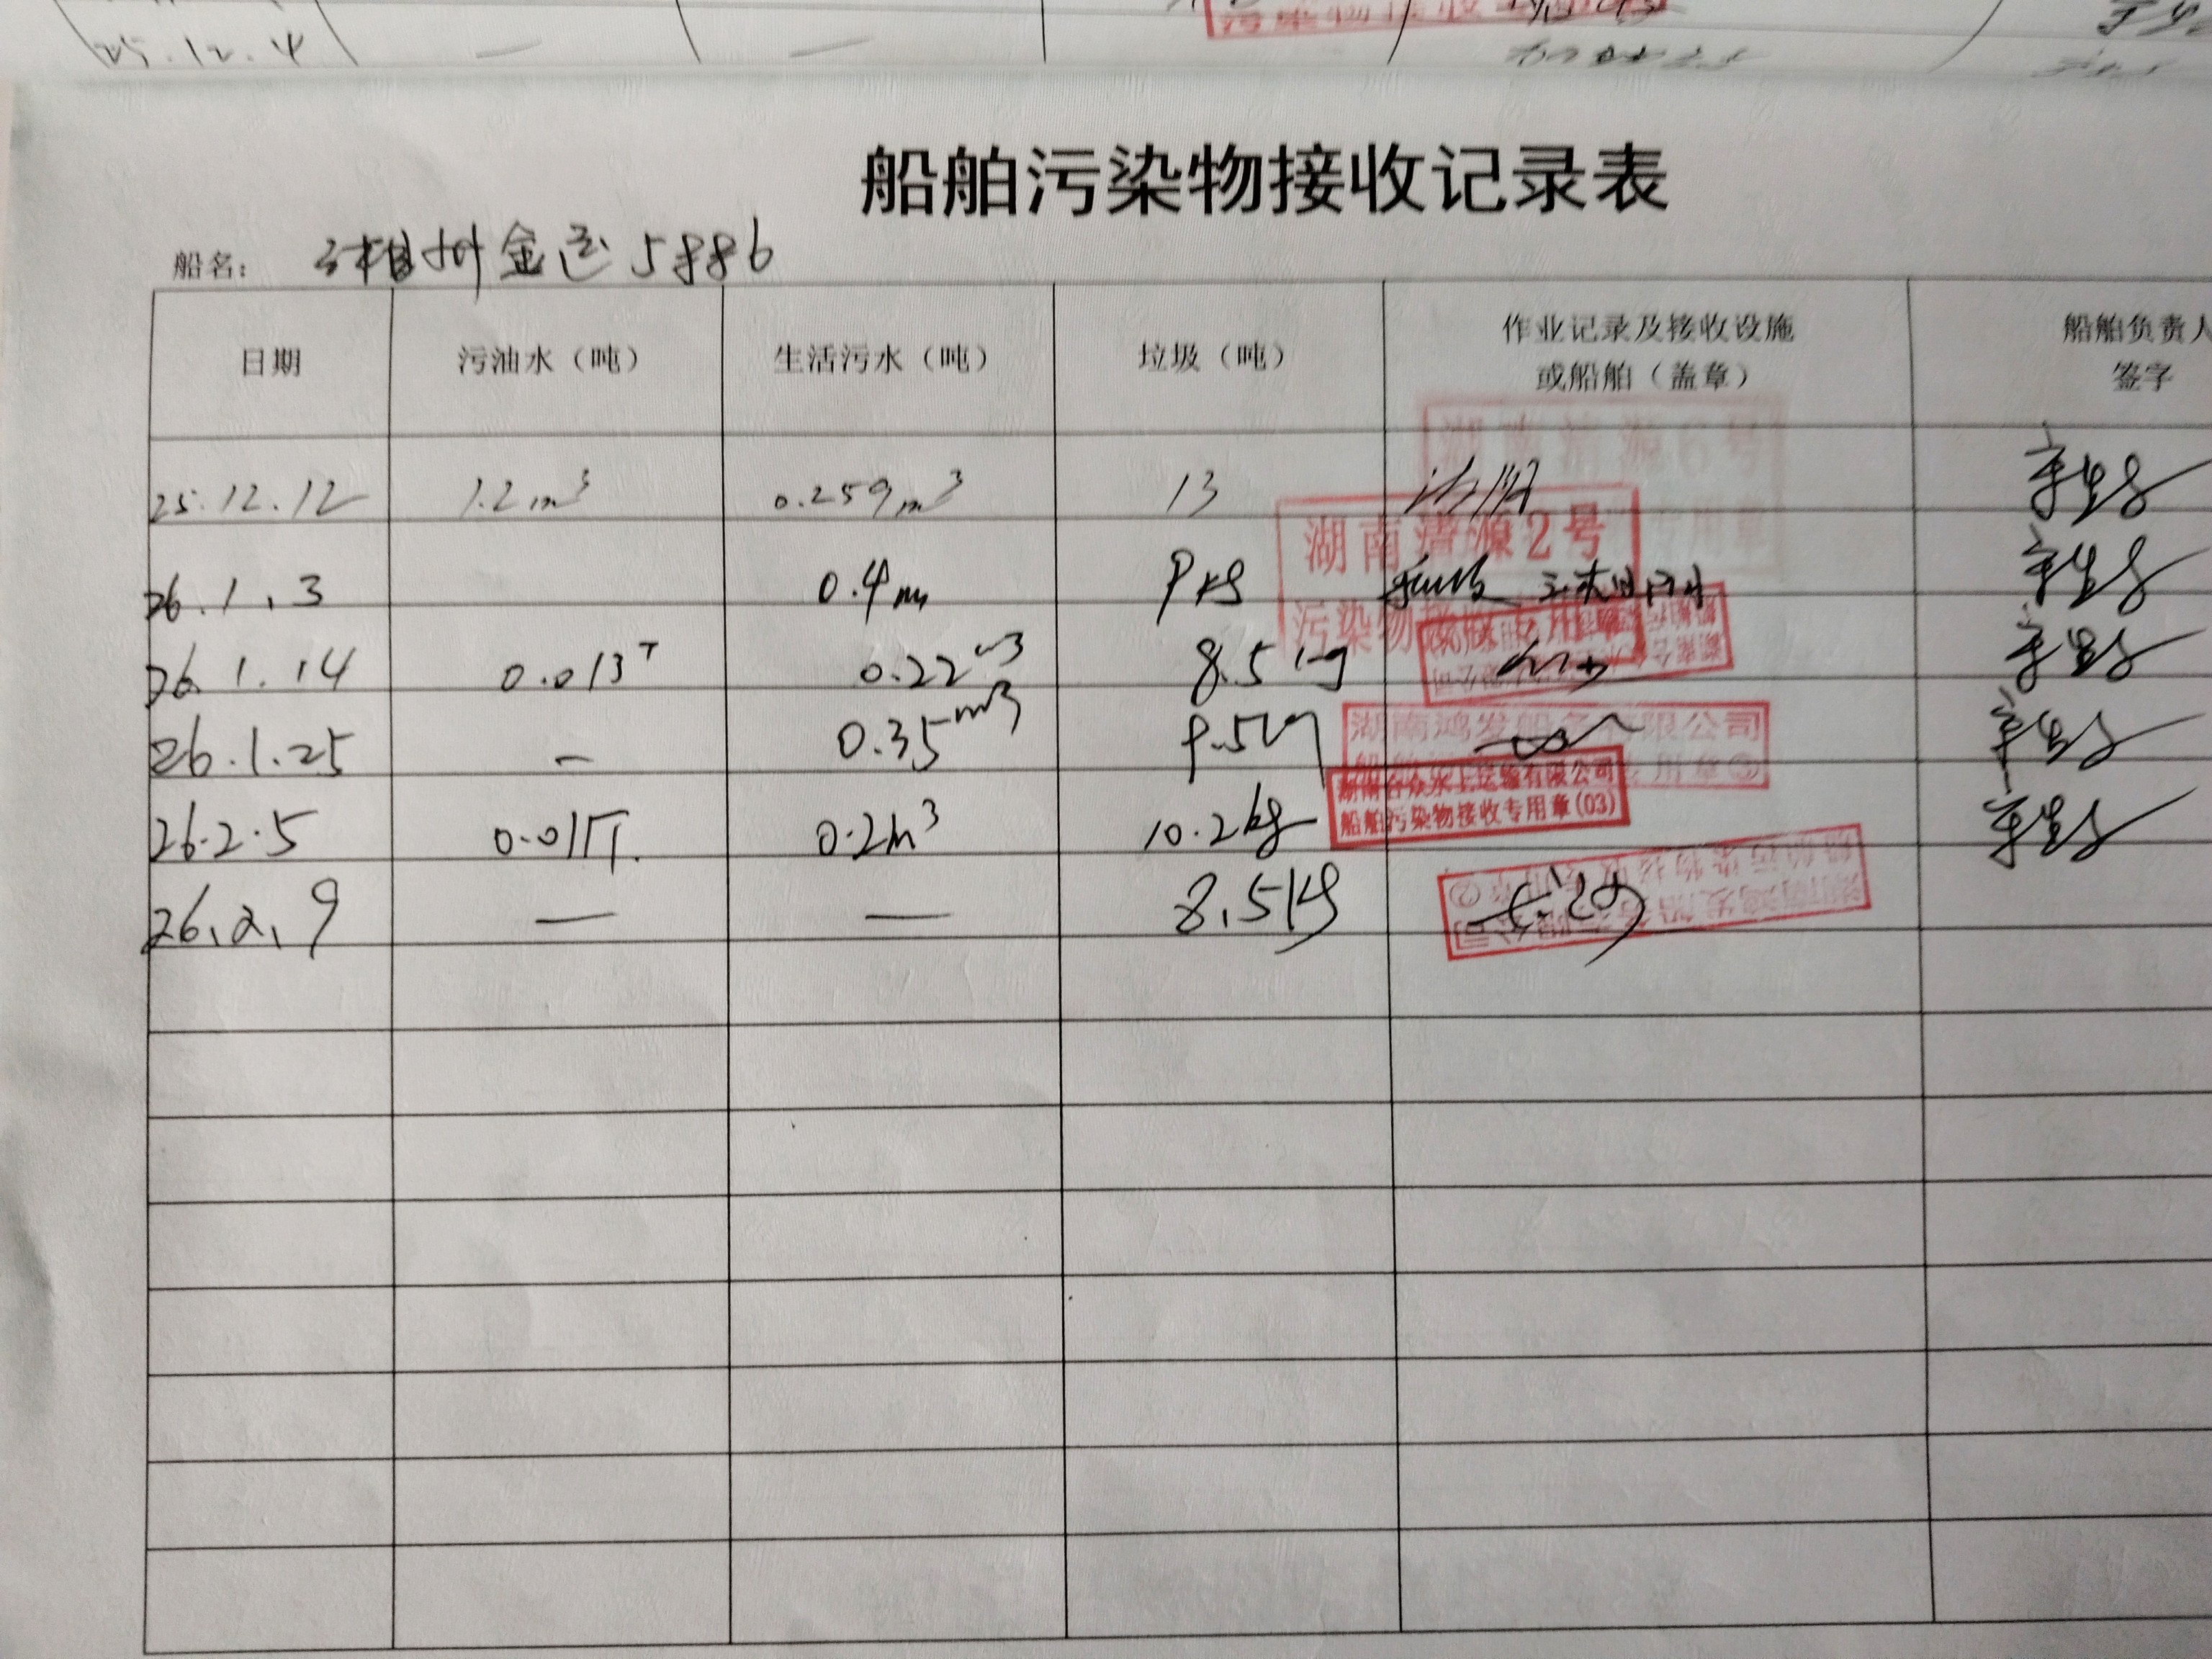 25.12.4 — —
船舶污染物接收记录表
船名： 湘州金运5886
日期 污油水（吨） 生活污水（吨） 垃圾（吨） 作业记录及接收设施 船舶负责人
或船舶（盖章） 签字
湖南清源6号
专用章
25.12.12 1.2m³ 0.259m³ 13
湖南清源2号
污染物接收专用章
26.1.3 0.4m 9kg
26.1.14 0.013T 0.22m3 8.5kg
26.1.25 — 0.35m3 9.5kg
湖南鸿发船务有限公司
26.2.5 0.011T. 0.2m³ 10.2kg
湖南合众水上运输有限公司
船舶污染物接收专用章(03)
26.2.9 — — 8.5Kg
湖南鸿发船务有限公司
船舶污染物接收专用章②